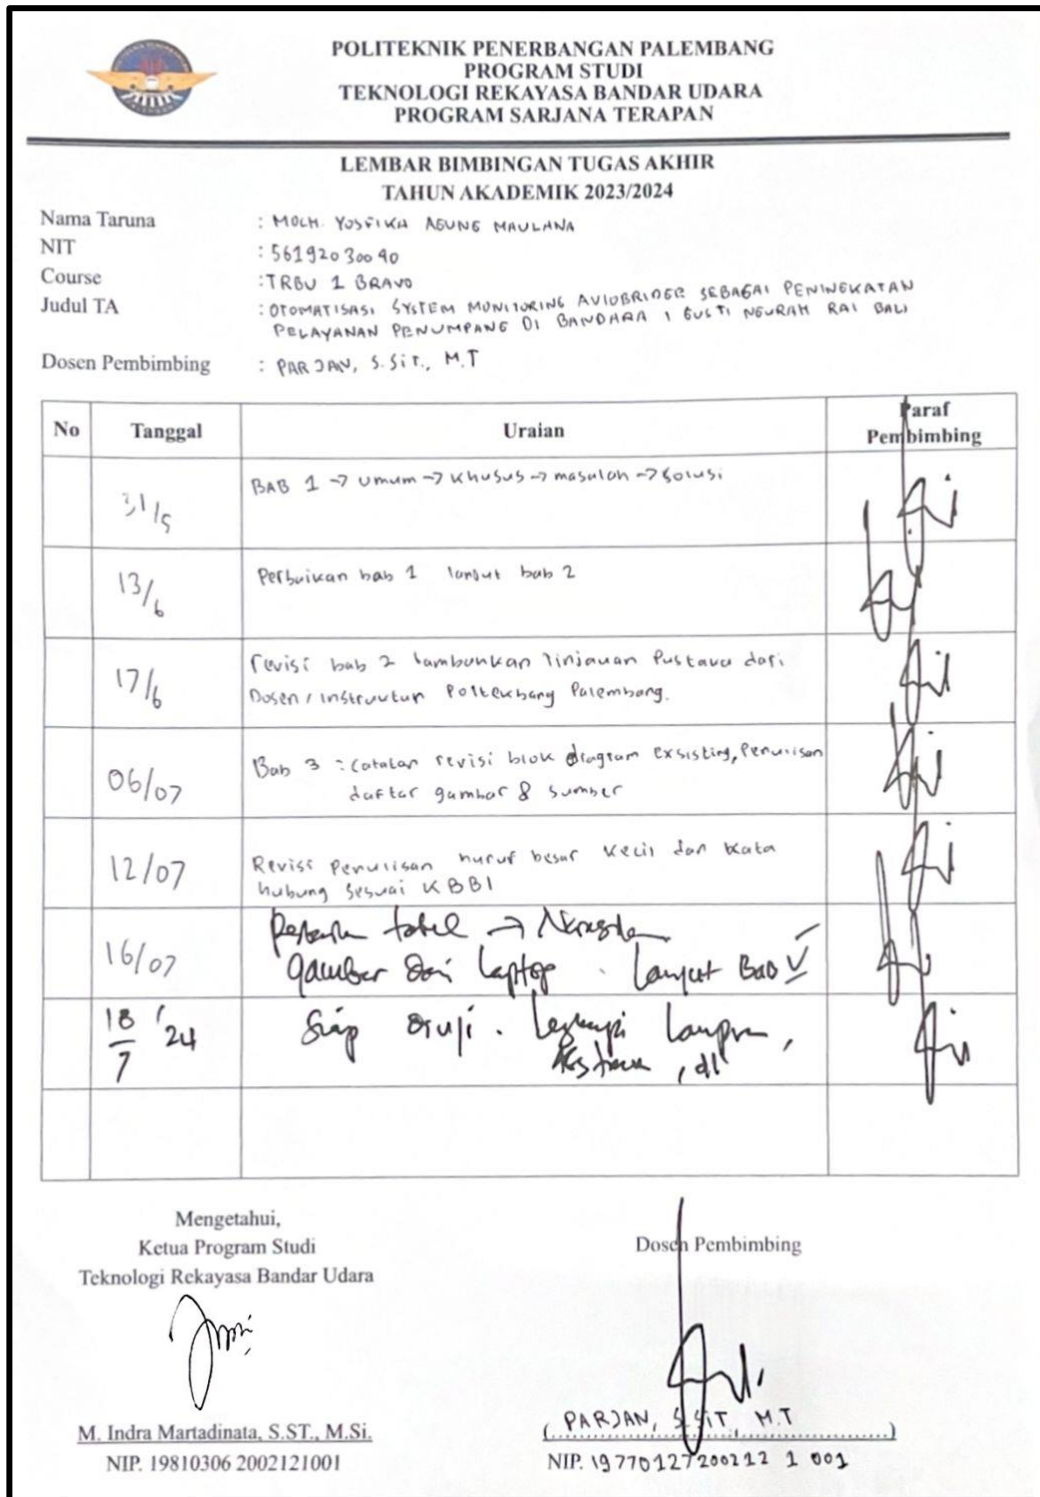 POLITEKNIK PENERBANGAN PALEMBANG
PROGRAM STUDI
TEKNOLOGI REKAYASA BANDAR UDARA
PROGRAM SARJANA TERAPAN
LEMBAR BIMBINGAN TUGAS AKHIR
TAHUN AKADEMIK 2023/2024
Nama Taruna : MOCH. YOSFIKA AGUNG MAULANA
NIT : 56192030040
Course : TRBU 1 BRAVO
Judul TA : OTOMATISASI SYSTEM MONITORING AVIOBRIDGE SEBAGAI PENINGKATAN
PELAYANAN PENUMPANG DI BANDARA I GUSTI NGURAH RAI BALI
Dosen Pembimbing : PARJAN, S.SiT., M.T
No Tanggal Uraian Paraf
Pembimbing
31/5 BAB 1 → umum → khusus → masalah → solusi
13/6 Perbaikan bab 1 lanjut bab 2
17/6 revisi bab 2 tambahkan tinjauan Pustaka dari
Dosen / instruktur Poltekbang Palembang.
06/07 Bab 3 : Catatan revisi blok diagram exsisting, Penulisan
daftar gambar & sumber
12/07 Revisi Penulisan huruf besar kecil dan kata
hubung sesuai KBBI
16/07 tabel →
gambar dari laptop . Lanjut Bab V
18/7 '24 Siap diuji . Lengkapi
, dll
Mengetahui,
Ketua Program Studi
Teknologi Rekayasa Bandar Udara
M. Indra Martadinata, S.ST., M.Si.
NIP. 19810306 2002121001
Dosen Pembimbing
(PARJAN, S.SiT., M.T)
NIP. 19770127200212 1 001